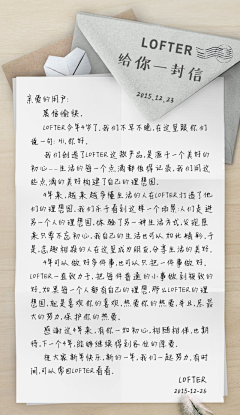 LOFTER
给你一封信
2015.12.23
亲爱的用户:
展信愉快。
LOFTER今年4岁了,我们不早不晚,在这里跟你们
说一句:Hi,你好。
我们创造了LOFTER这款产品,是源于一个美好的
初心——生活的每一个点滴都值得记录,我们用这
些点滴的美好构建了自己的理想国。
4年来,越来越多懂生活的人在LOFTER打造了他
们的理想国,我们乐于看到这样一个场景:人们走进
另一个人的理想国,体验了另一种生活方式,发现原
来只要不忘初心,我自己的生活也可以如此精彩。于
是,志趣相投的人在这里成为朋友,分享生活的美好。
4年可以做好多件事,也可以只把一件事做好。
LOFTER一直致力于,把每件普通的小事做到极致的
好。如果每一个人都有自己的理想,那么LOFTER的理
想国,就是喜欢你的喜欢,热爱你的热爱,并且,尽最
大的努力,保护你的热爱。
感谢这4年来,有你一如初心,相随相伴。也期
待,下一个4年,能够继续得到各位的厚爱。
祝大家新年快乐,新的一年,我们一起努力。有时
间,可以常回LOFTER看看。
LOFTER
2015-12-26